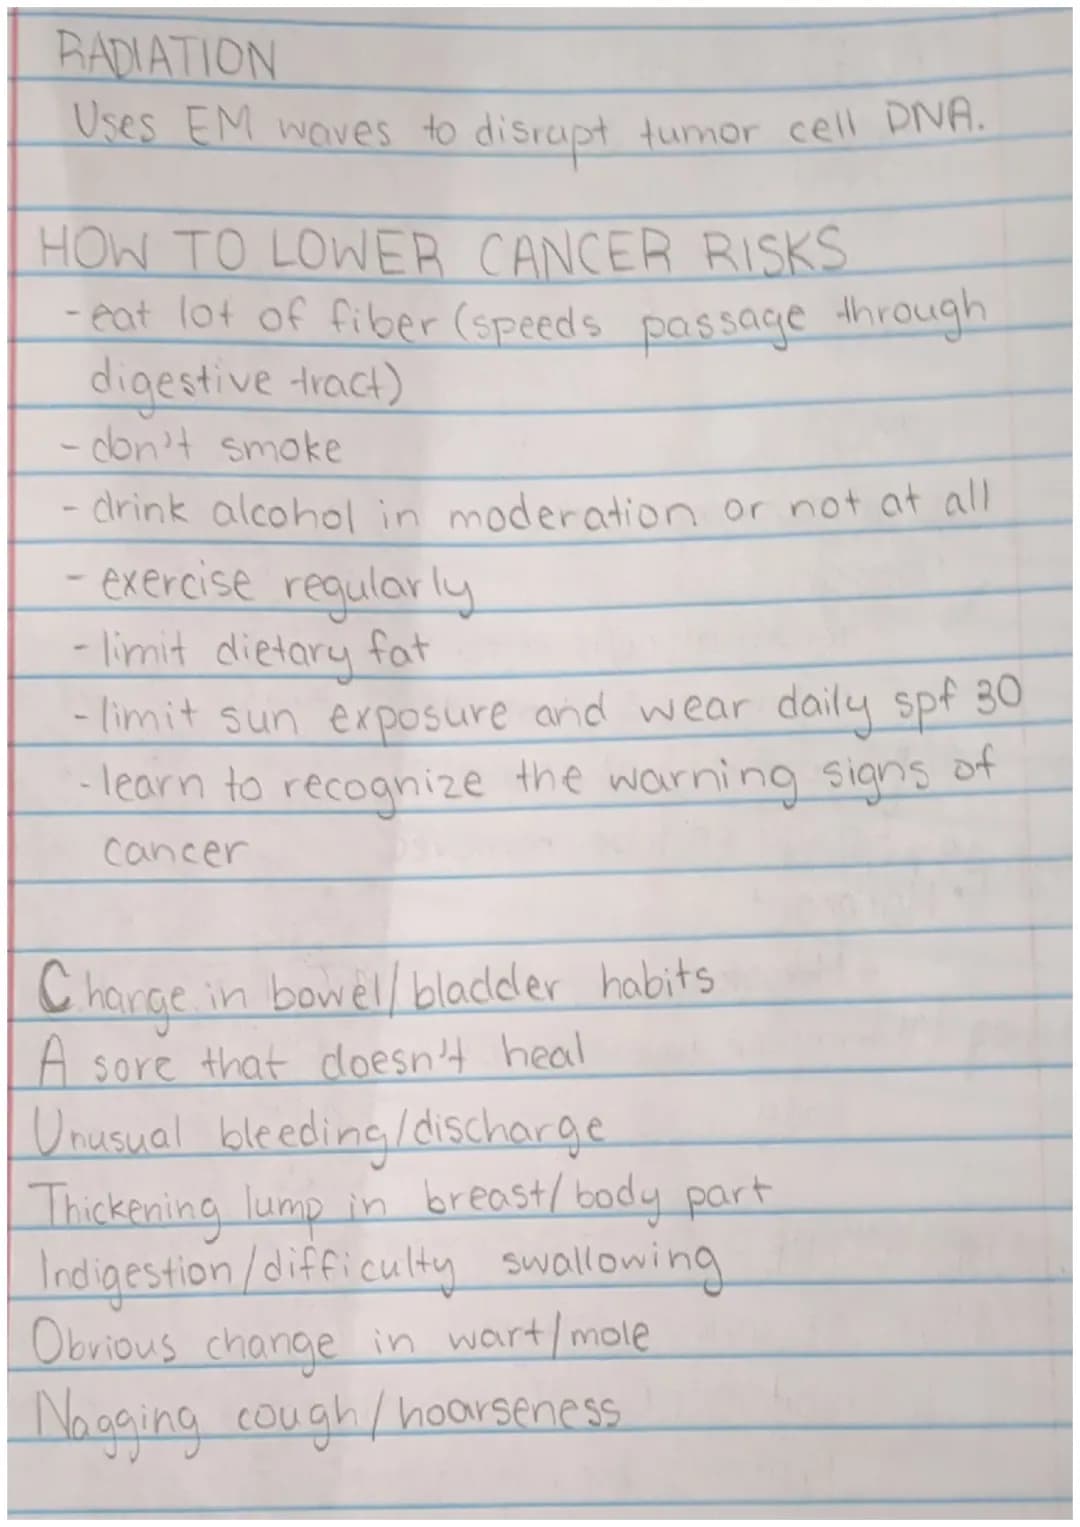 RADIATION
Uses EM waves to disrupt tumor cell DNA.
HOW TO LOWER CANCER RISKS
- eat lot of fiber (speeds passage through
digestive tract)
- don't smoke
- drink alcohol in moderation or not at all
- exercise regularly
- limit dietary fat
- limit sun exposure and wear daily spf 30
- learn to recognize the warning signs of
cancer
Change in bowel/bladder habits
A sore that doesn't heal
Unusual bleeding/discharge
Thickening lump in breast/body part
Indigestion/difficulty swallowing
Obvious change in wart/mole
Nagging cough/hoarseness